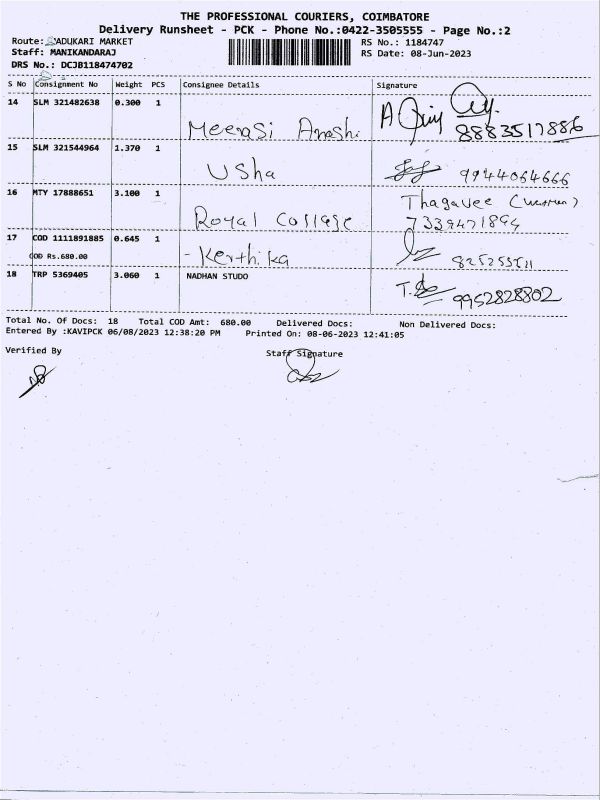 THE PROFESSIONAL COURIERS, COIMBATORE
Delivery Runsheet - PCK - Phone No.:0422-3505555 - Page No.:2
Route: ADUKARI MARKET
RS No.: 1184747
Staff: MANIKANDARAJ
RS Date: 08-Jun-2023
DRS No.: DCJB118474702
S No Consignment No Weight PCS Consignee Details Signature
14 SLM 321482638 0.300 1
Meerasi 8883517886
15 SLM 321544964 1.370 1
Usha 9944064666
16 MTY 17888651 3.100 1 Thagavee
Royal College 7339471894
17 COD 1111891885 0.645 1
COD Rs.680.00 - Kerthika
18 TRP 5369405 3.060 1 NADHAN STUDO
9952828802
Total No. Of Docs: 18 Total COD Amt: 680.00 Delivered Docs: Non Delivered Docs:
Entered By :KAVIPCK 06/08/2023 12:38:20 PM Printed On: 08-06-2023 12:41:05
Verified By Staff Signature